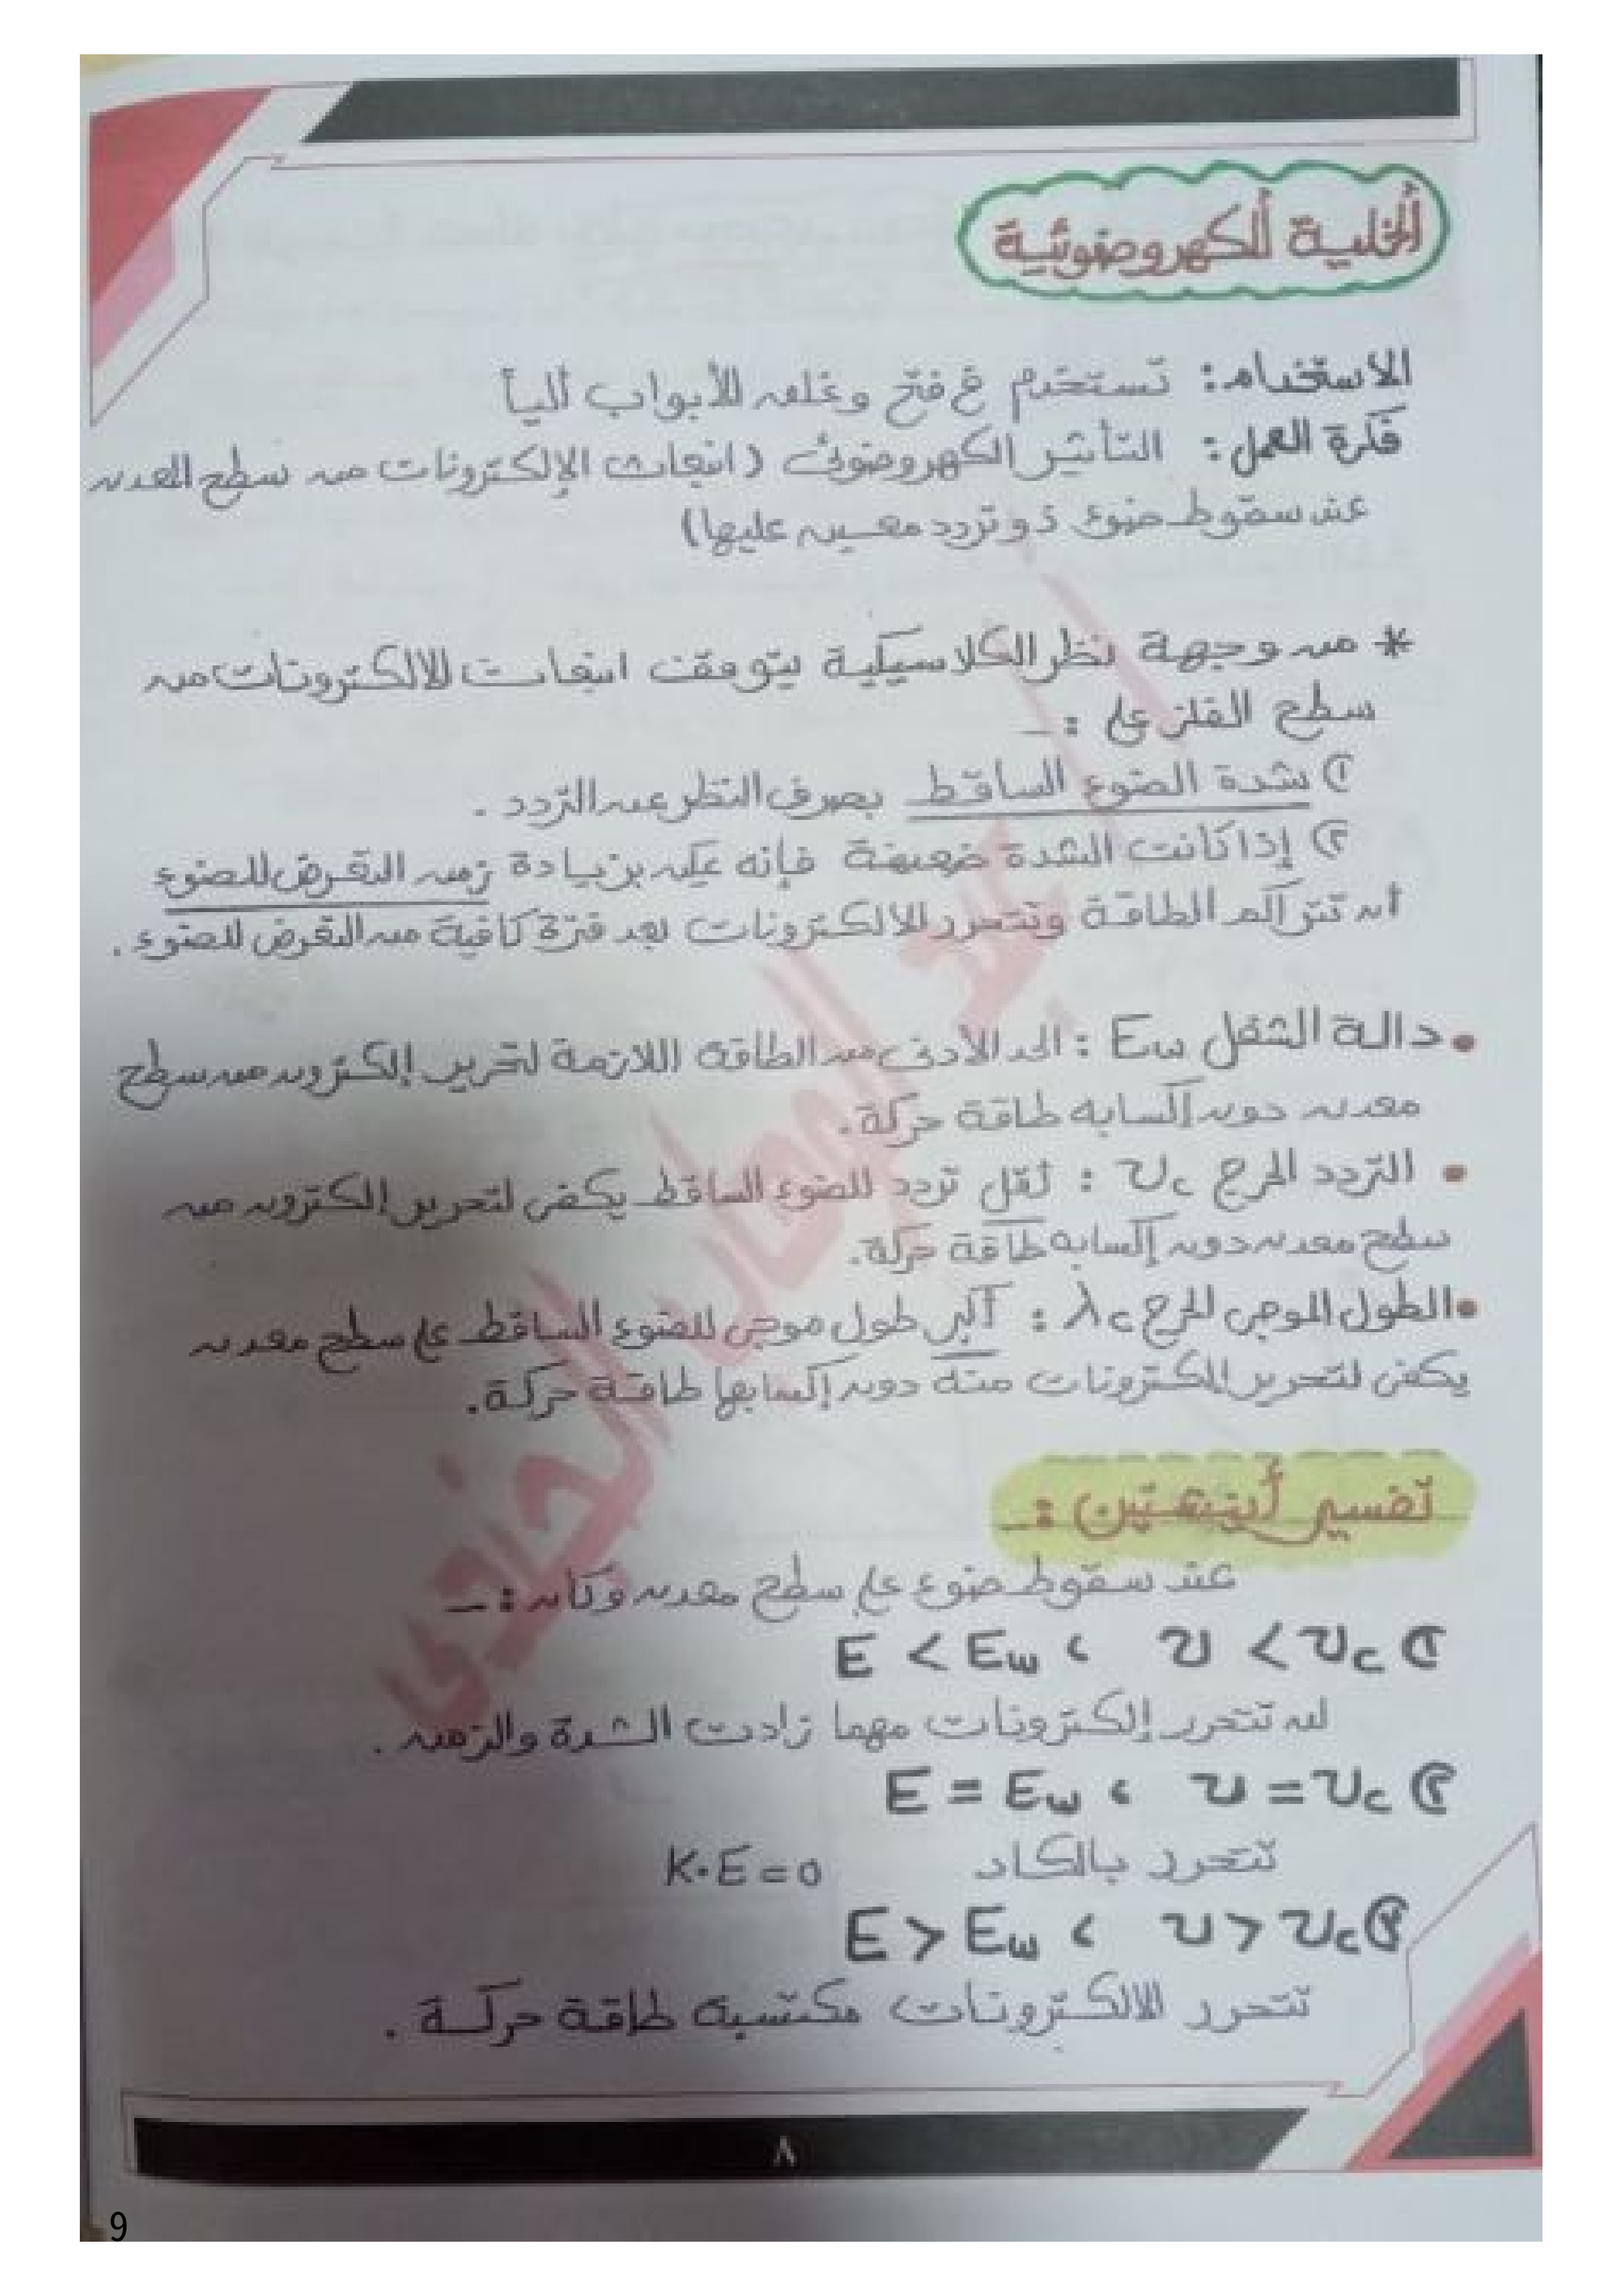 الخلية الكهروضوئية
الاستخدام: تستخدم في فتح وغلق الأبواب آلياً
فكرة العمل: التأثير الكهروضوئي (انبعاث الإلكترونات من سطح المعدن
عند سقوط ضوء ذو تردد معين عليها)
* من وجهة نظر الكلاسيكية يتوقف انبعاث الالكترونات من
سطح الفلز على :ـ
① شدة الضوء الساقط بصرف النظر عن التردد .
② إذا كانت الشدة ضعيفة فإنه يمكن بزيادة زمن التعرض للضوء
أن تتراكم الطاقة وتتحرر الالكترونات بعد فترة كافية من التعرض للضوء .
• دالة الشغل Ew : الحد الأدنى من الطاقة اللازمة لتحرير إلكترون من سطح
معدن دون إكسابه طاقة حركة.
• التردد الحرج υc : أقل تردد للضوء الساقط يكفي لتحرير إلكترون من
سطح معدن دون إكسابه طاقة حركة.
• الطول الموجي الحرج λc : أكبر طول موجي للضوء الساقط على سطح معدن
يكفي لتحرير إلكترونات منه دون إكسابها طاقة حركة.
تفسير أينشتين :ـ
عند سقوط ضوء على سطح معدن وكان :ـ
① υ < υc ، E < Ew
لن تتحرر إلكترونات مهما زادت الشدة والزمن .
② υ = υc ، E = Ew
تتحرر بالكاد K.E = 0
③ υ > υc ، E > Ew
تتحرر الالكترونات مكتسبة طاقة حركة .
٨
9